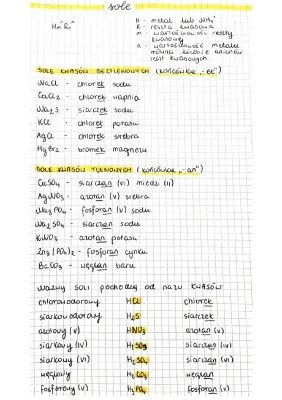 sole
Hn⁺Rₙ⁻
H - metal lub NH₄⁺
R - reszta kwasowa
m - wartościowość reszty kwasowej
n - wartościowość metalu równa liczbie anionów reszt kwasowych
SOLE KWASÓW BEZTLENOWYCH (końcówka „-ek”)
NaCl - chlorek sodu
CaCl₂ - chlorek wapnia
Na₂S - siarczek sodu
KCl - chlorek potasu
AgCl - chlorek srebra
MgBr₂ - bromek magnezu
SOLE KWASÓW TLENOWYCH (końcówka „-an”)
CuSO₄ - siarczan (VI) miedzi (II)
AgNO₃ - azotan (V) srebra
Na₃PO₄ - fosforan (V) sodu
Na₂SO₄ - siarczan sodu
KNO₃ - azotan potasu
Zn₃(PO₄)₂ - fosforan cynku
BaCO₃ - węglan baru
nazwy soli pochodzą od nazw kwasów
chlorowodorowy HCl chlorek
siarkowodorowy H₂S siarczek
azotowy (V) HNO₃ azotan (V)
siarkowy (IV) H₂SO₃ siarczan (IV)
siarkowy (VI) H₂SO₄ siarczan (VI)
węglowy H₂CO₃ węglan
fosforowy (V) H₃PO₄ fosforan (V)